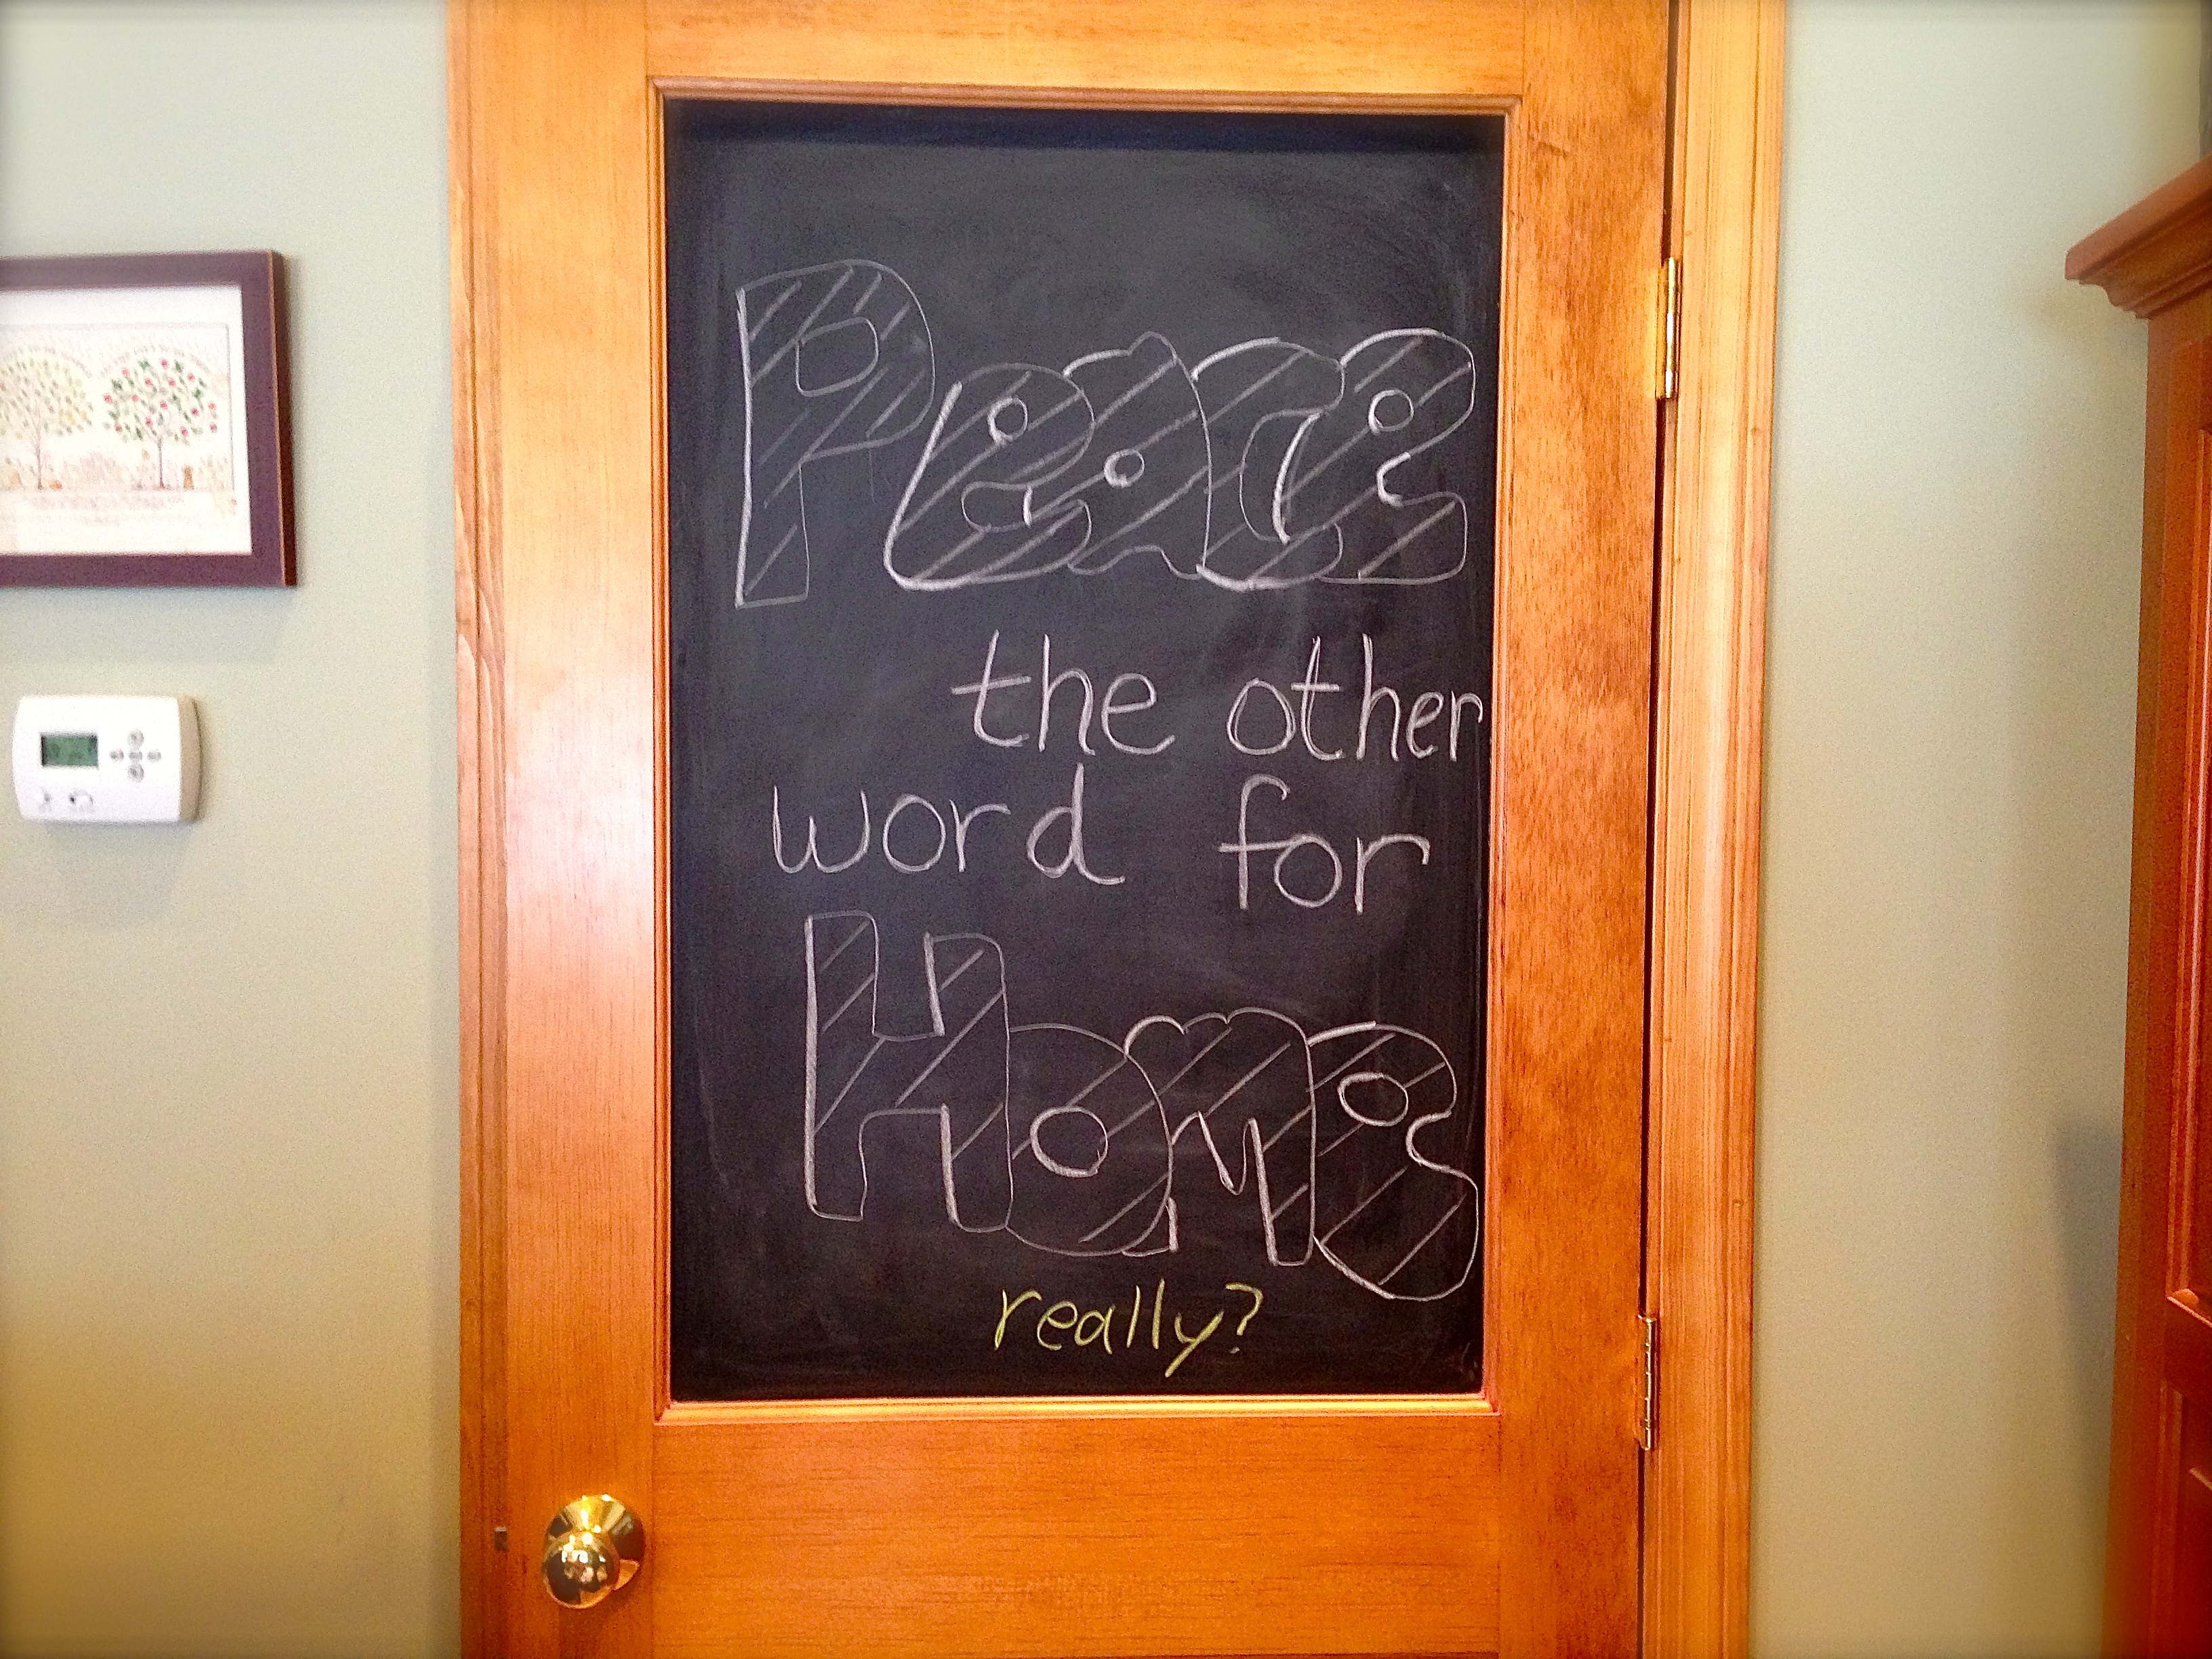 Peace
the other
word for
Home
really?